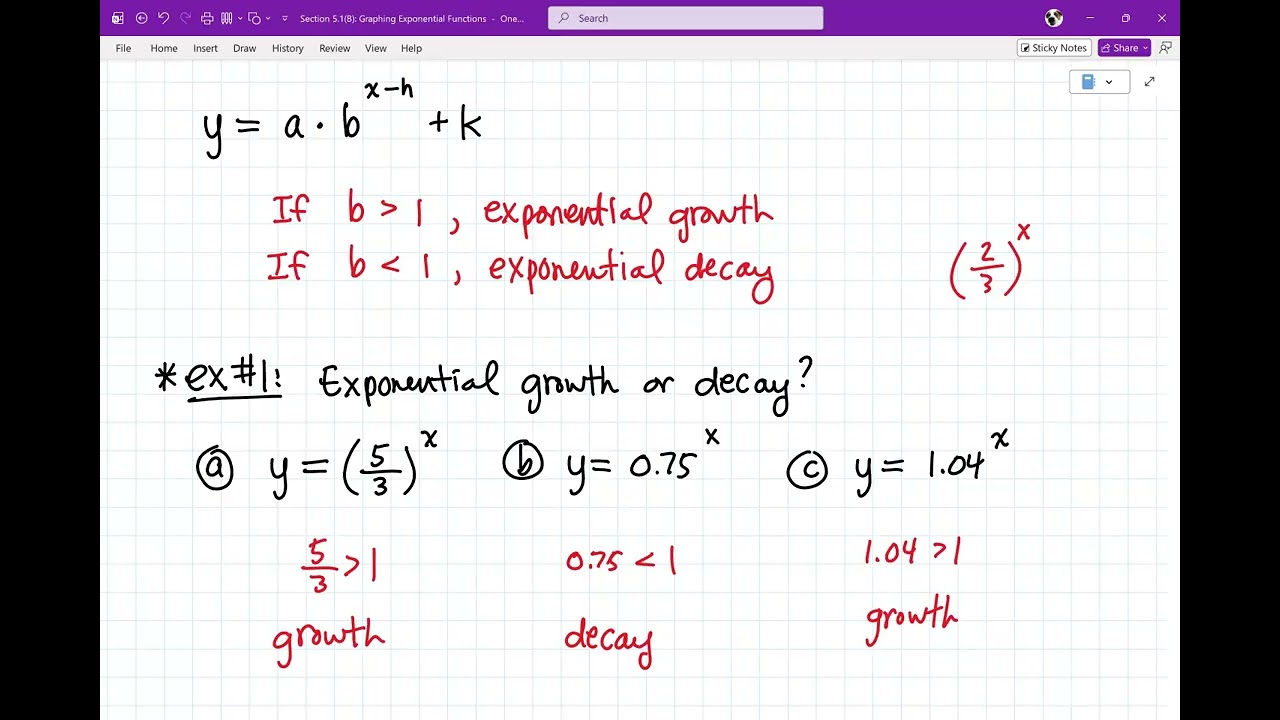 Section 5.1(B): Graphing Exponential Functions - One...
Search
File Home Insert Draw History Review View Help
Sticky Notes Share
y = a · b^(x-h) + k
If b > 1, exponential growth
If b < 1, exponential decay
(2/3)^x
*ex#1: Exponential growth or decay?
ⓐ y = (5/3)^x ⓑ y = 0.75^x ⓒ y = 1.04^x
5/3 > 1 0.75 < 1 1.04 > 1
growth decay growth